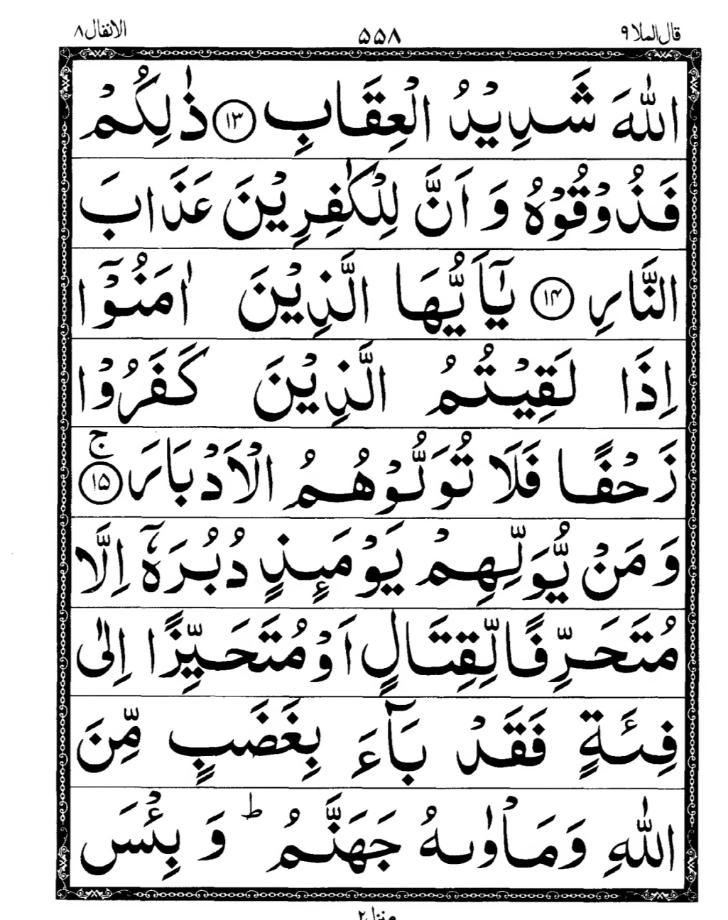 قال الملا ۹ ۵۵۸ الانفال ۸
اللّٰهَ شَدِیْدُ الْعِقَابِ ﴿۱۳﴾ ذٰلِكُمْ
فَذُوْقُوْهُ وَ اَنَّ لِلْكٰفِرِیْنَ عَذَابَ
النَّارِ ﴿۱۴﴾ یٰۤاَیُّهَا الَّذِیْنَ اٰمَنُوْۤا
اِذَا لَقِیْتُمُ الَّذِیْنَ كَفَرُوْا
زَحْفًا فَلَا تُوَلُّوْهُمُ الْاَدْبَارَ ﴿۱۵﴾ۚ
وَ مَنْ یُّوَلِّهِمْ یَوْمَىِٕذٍ دُبُرَهٗۤ اِلَّا
مُتَحَرِّفًا لِّقِتَالٍ اَوْ مُتَحَیِّزًا اِلٰى
فِئَةٍ فَقَدْ بَآءَ بِغَضَبٍ مِّنَ
اللّٰهِ وَ مَاْوٰىهُ جَهَنَّمُ ؕ وَ بِئْسَ
منزل ۲